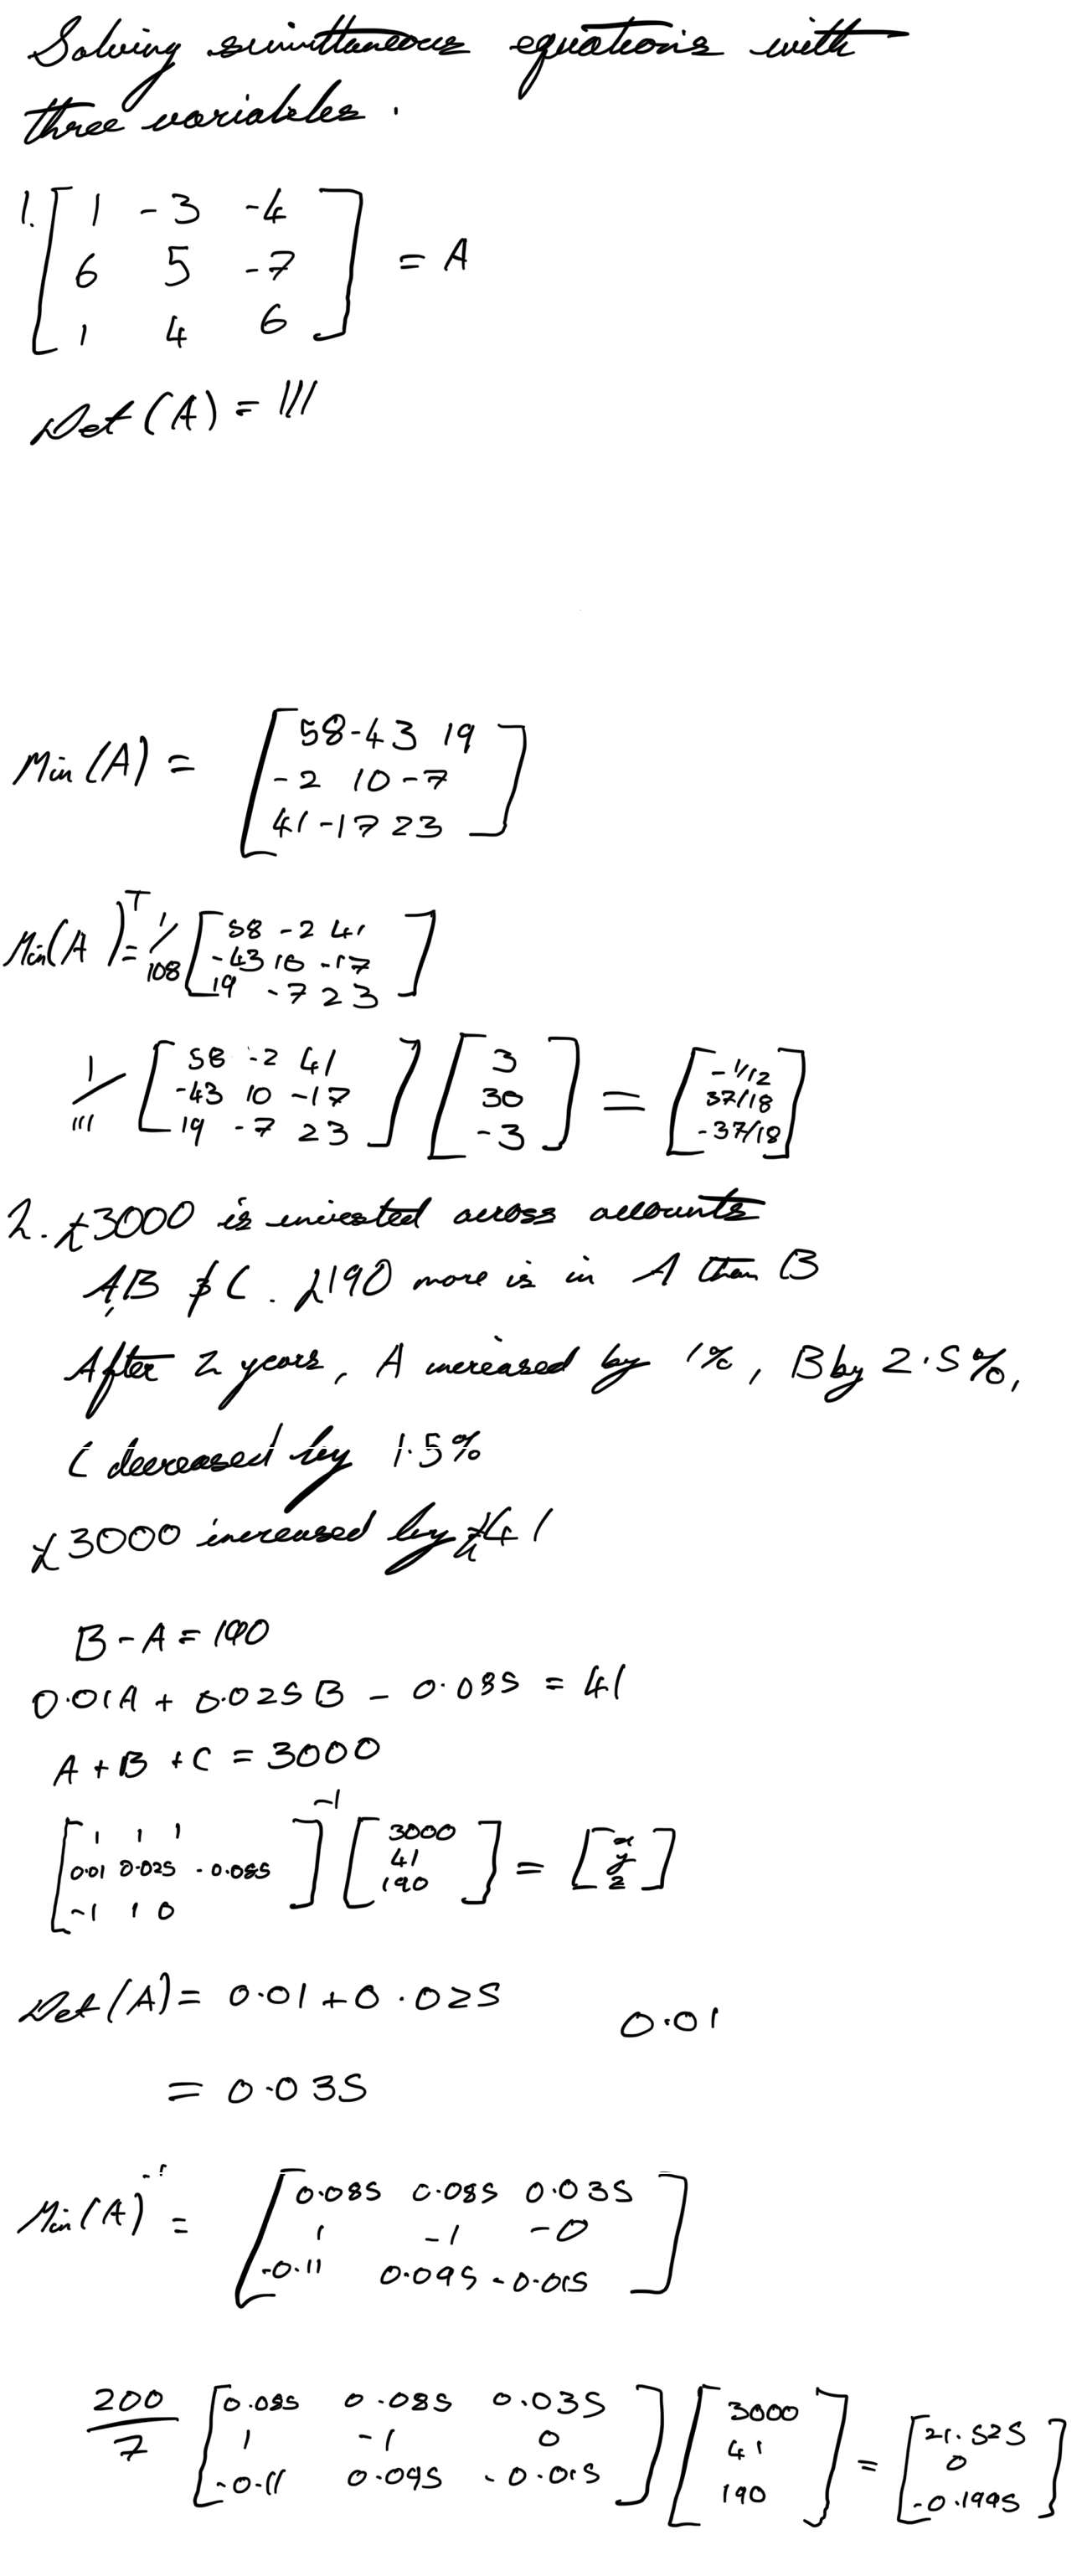 Solving simultaneous equations with
three variables.
1. [ 1 -3 -4
6 5 -7
1 4 6 ] = A
Det(A) = 111
Min(A) = [ 58 -43 19
-2 10 -7
41 -17 23 ]
Min(A)^T = 1/108 [ 58 -2 41
-43 10 -17
19 -7 23 ]
1/111 [ 58 -2 41
-43 10 -17
19 -7 23 ] [ 3
30
-3 ] = [ -1/12
37/18
-37/18 ]
2. £3000 is invested across accounts
A,B & C. £190 more is in A than B
After 2 years, A increased by 1%, B by 2.5%,
C decreased by 1.5%
£3000 increased by £41
B - A = 190
0.01A + 0.025B - 0.085 = 41
A + B + C = 3000
[ 1 1 1
0.01 0.025 -0.085
-1 1 0 ]^-1 [ 3000
41
190 ] = [ x
y
z ]
Det(A) = 0.01 + 0.025
0.01
= 0.035
Min(A)^-1 = [ 0.085 0.085 0.035
1 -1 -0
-0.11 0.095 -0.015 ]
200/7 [ 0.085 0.085 0.035
1 -1 0
-0.11 0.095 -0.015 ] [ 3000
41
190 ] = [ 21.525
0
-0.1995 ]